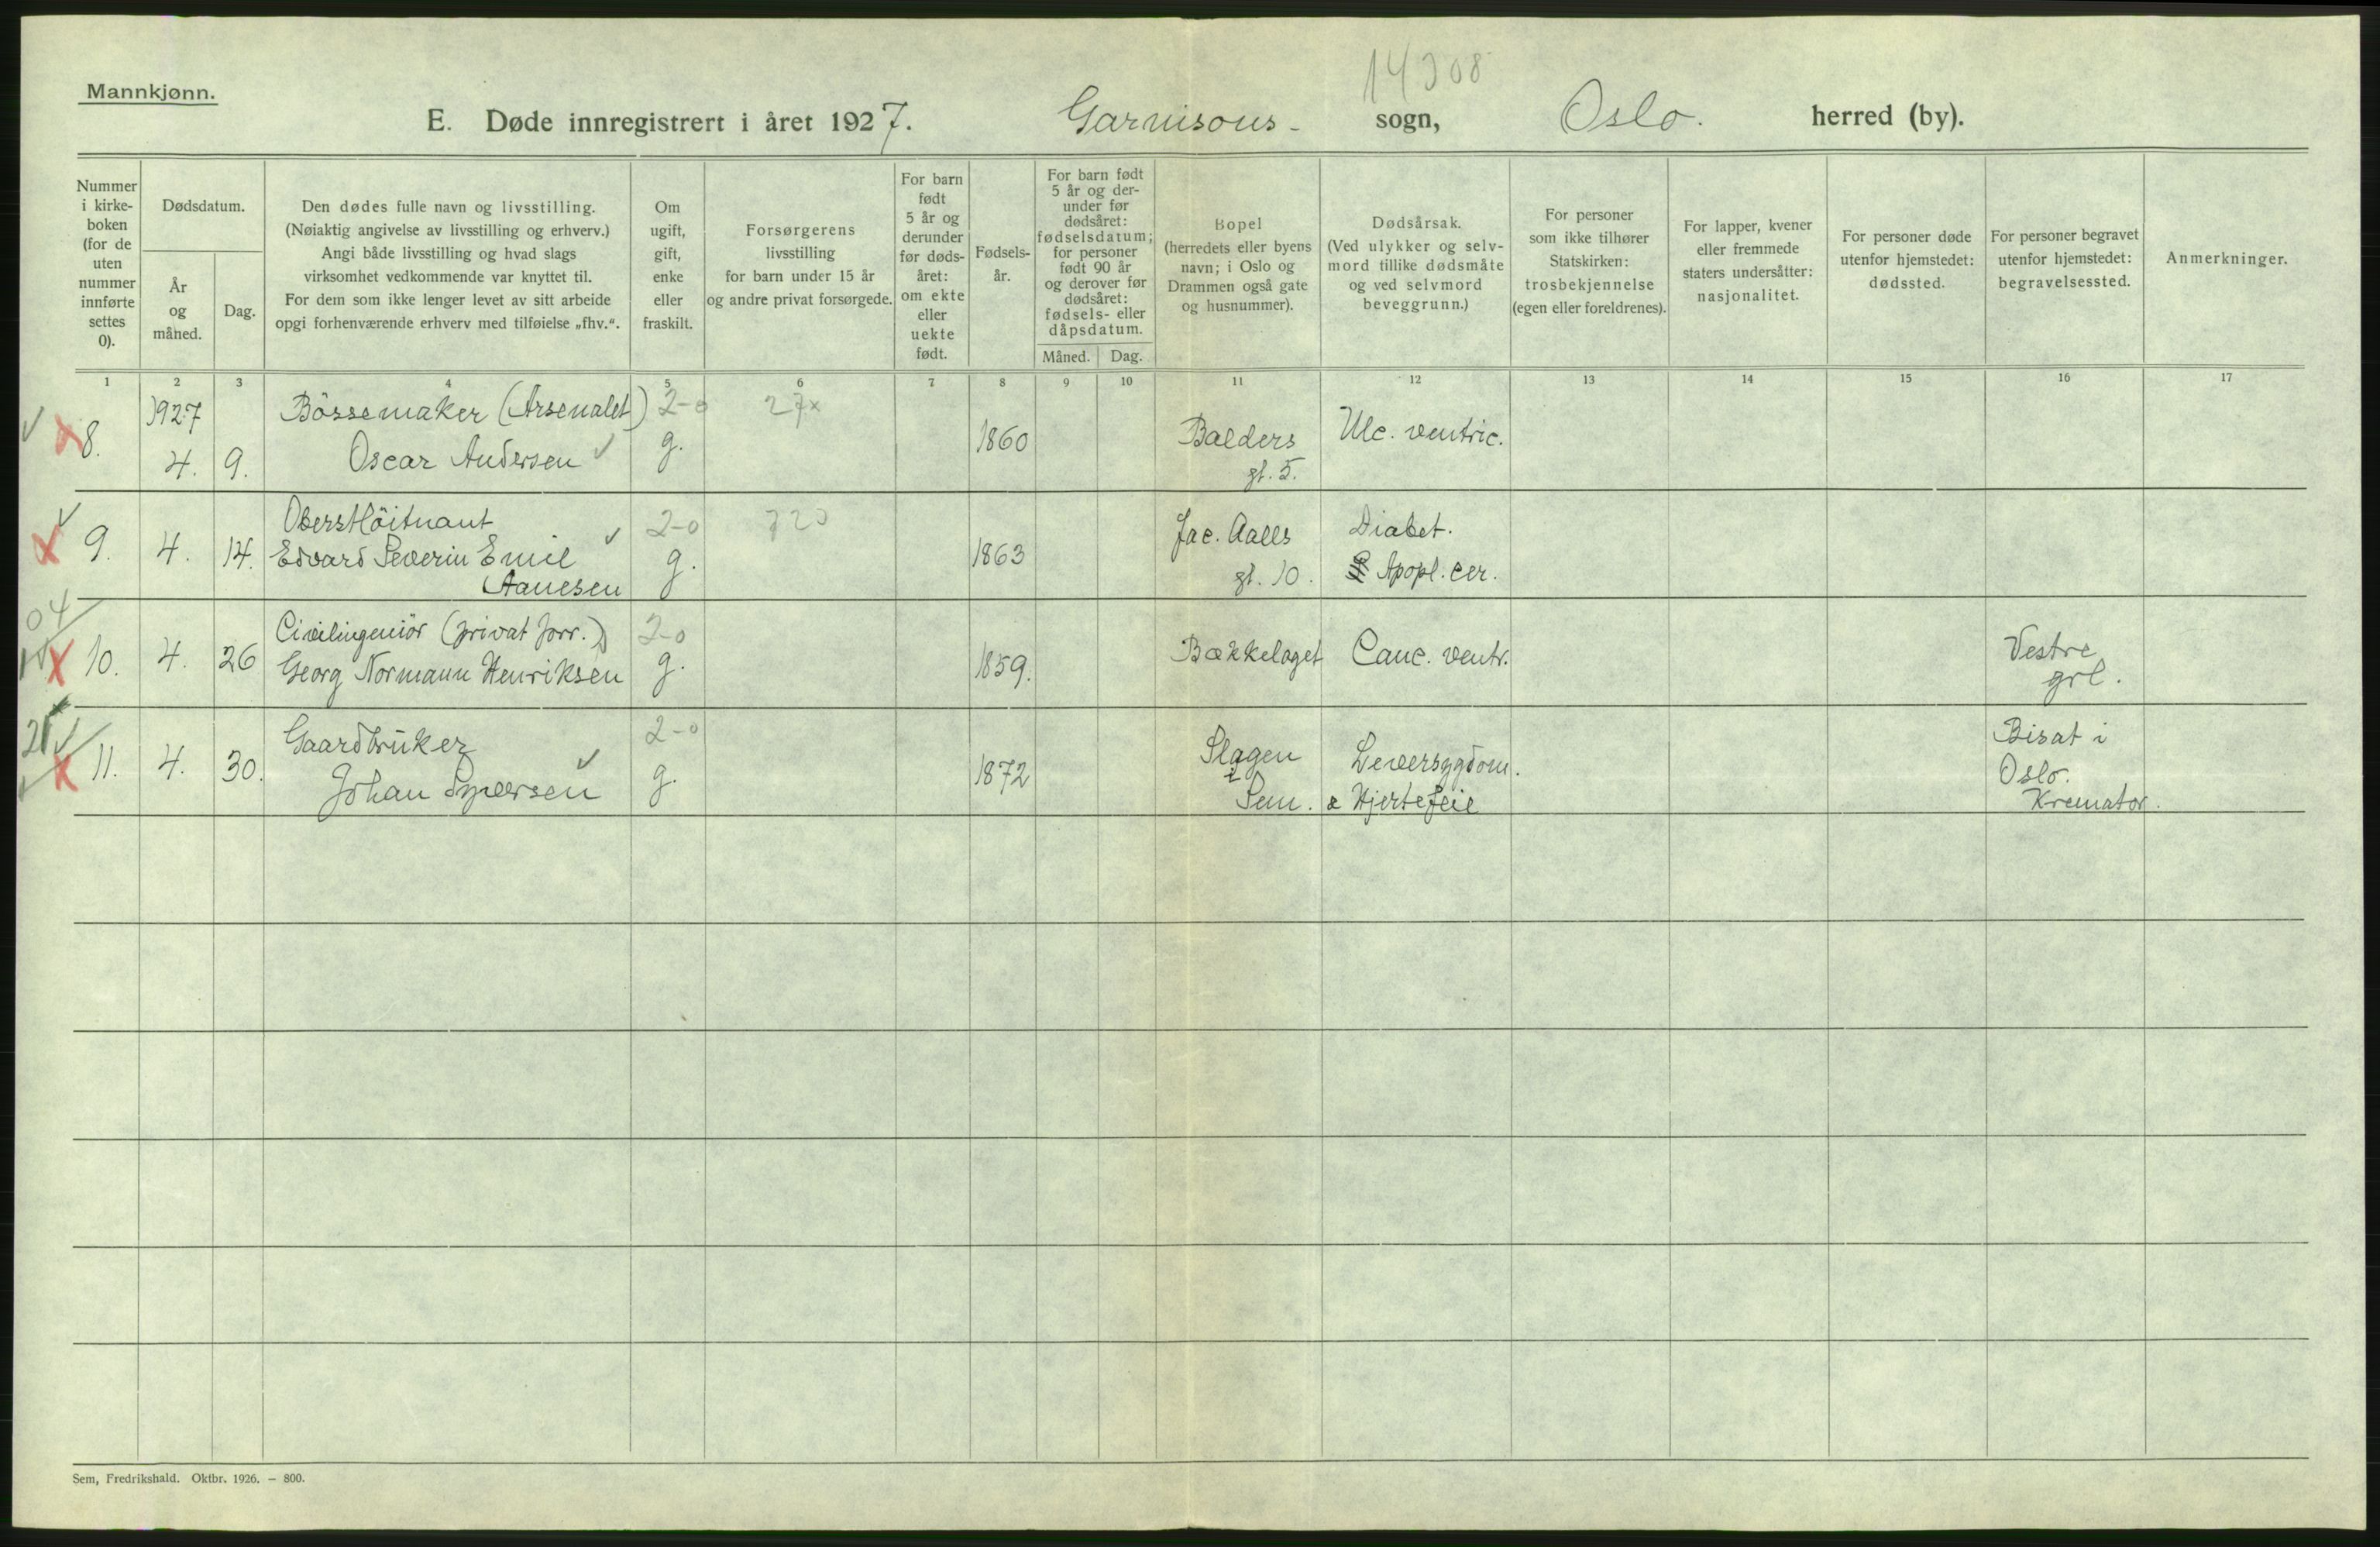 14308
Mannkjønn.
E. Døde innregistrert i året 1927. Garnisons- sogn, Oslo. herred (by).
Nummer
i kirke-
boken
(for de
uten
nummer
innførte
settes
0).
Dødsdatum.
År
og
måned.
Dag.
Den dødes fulle navn og livsstilling.
(Nøiaktig angivelse av livsstilling og erhverv.)
Angi både livsstilling og hvad slags
virksomhet vedkommende var knyttet til.
For dem som ikke lenger levet av sitt arbeide
opgi forhenværende erhverv med tilføielse „fhv.“.
Om
ugift,
gift,
enke
eller
fraskilt.
Forsørgerens
livsstilling
for barn under 15 år
og andre privat forsørgede.
For barn
født
5 år og
derunder
før døds-
året:
om ekte
eller
uekte
født.
Fødsels-
år.
For barn født
5 år og der-
under før
dødsåret:
fødselsdatum;
for personer
født 90 år
og derover før
dødsåret:
fødsels- eller
dåpsdatum.
Måned. Dag.
Bopel
(herredets eller byens
navn; i Oslo og
Drammen også gate
og husnummer).
Dødsårsak.
(Ved ulykker og selv-
mord tillike dødsmåte
og ved selvmord
beveggrunn.)
For personer
som ikke tilhører
Statskirken:
trosbekjennelse
(egen eller foreldrenes).
For lapper, kvener
eller fremmede
staters undersåtter:
nasjonalitet.
For personer døde
utenfor hjemstedet:
dødssted.
For personer begravet
utenfor hjemstedet:
begravelsessted.
Anmerkninger.
1 2 3 4 5 6 7 8 9 10 11 12 13 14 15 16 17
1927 Bössemaker (Arsenalet) 2-0 27x
8. 4. 9. Oscar Andersen g. 1860 Balders Ulc. ventric.
gt. 5.
Oberstlöitnant 2-0 720
9. 4. 14. Edvard Severin Emil g. 1863 Jac. Aalls Diabet.
Aanesen gt. 10. Apopl. cer.
04
Civilingeniör (privat forr.) 2-0
10. 4. 26 Georg Normann Henriksen g. 1859. Bækkelaget Canc. ventr. Vestre
grl.
21
Gaardbruker 2-0
11. 4. 30. Johan Syversen g. 1872 Slagen Leversygdom. Bisat i
i Oslo.
Sem. & Hjertefeil Kremator.
Sem, Fredrikshald. Oktbr. 1926. – 800.